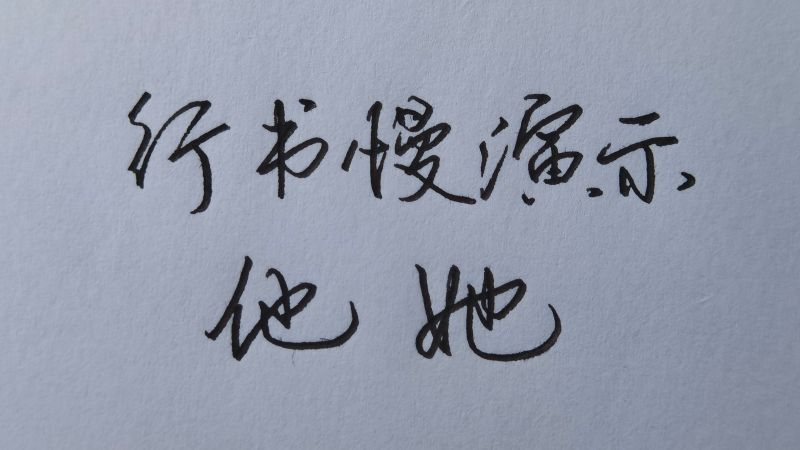 行书慢演示
他她